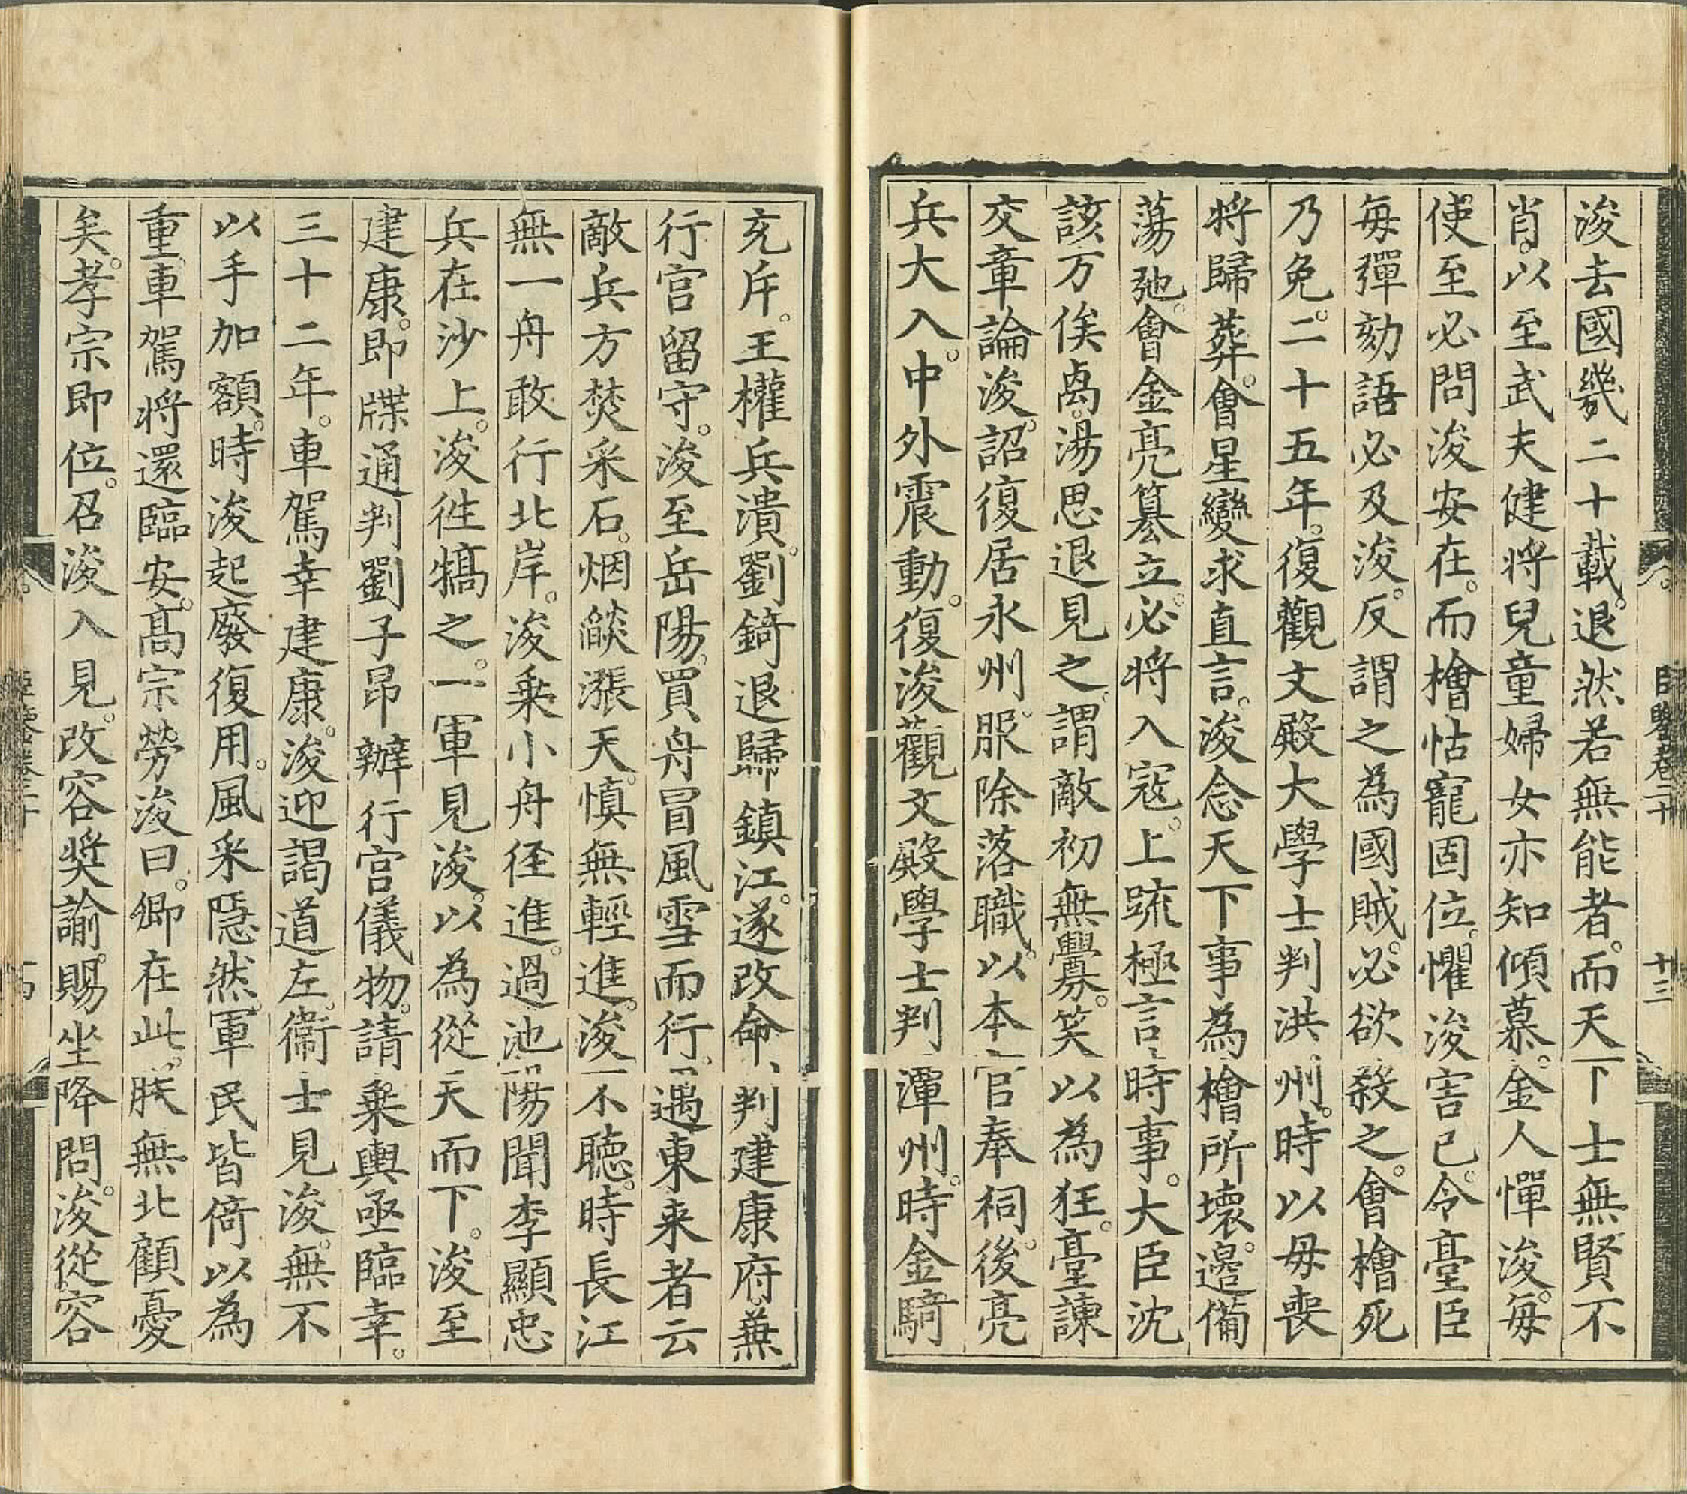 浚去國幾二十載。退然若無能者。而天下士無賢不
肖。以至武夫健將兒童婦女亦知傾慕。金人憚浚。每
使至必問浚安在。而檜怙寵固位。懼浚害已。令臺臣
每彈劾語必及浚。反謂之為國賊。必欲殺之。會檜死
乃免。二十五年。復觀文殿大學士判洪州。時以母喪
將歸葬。會星變求直言。浚念天下事為檜所壞。邉備
蕩弛。會金亮簒立。必將入寇。上疏極言時事。大臣沈
該万俟卨。湯思退見之。謂敵初無釁。笑以為狂。臺諫
交章論浚。詔復居永州。服除落職。以本官奉祠。後亮
兵大入。中外震動。復浚觀文殿學士判潭州。時金騎
充斥。王權兵潰。劉錡退歸鎮江。遂改命判建康府兼
行宮留守。浚至岳陽。買舟冒風雪而行。遇東来者云
敵兵方焚采石。烟燄漲天。慎無輕進。浚不聽。時長江
無一舟敢行北岸。浚乗小舟徑進。過池陽聞李顯忠
兵在沙上。浚徃犒之。一軍見浚。以為從天而下。浚至
建康。即牒通判劉子昂辦行宮儀物。請乗輿亟臨幸。
三十二年。車駕幸建康。浚迎謁道左。衞士見浚。無不
以手加額。時浚起廢復用。風采隠然。軍民皆倚以為
重。車駕將還臨安。髙宗勞浚曰。卿在此。朕無北顧憂
矣。孝宗即位。召浚入見。改容奨諭。賜坐降問。浚從容
臣鑒卷二十
十三